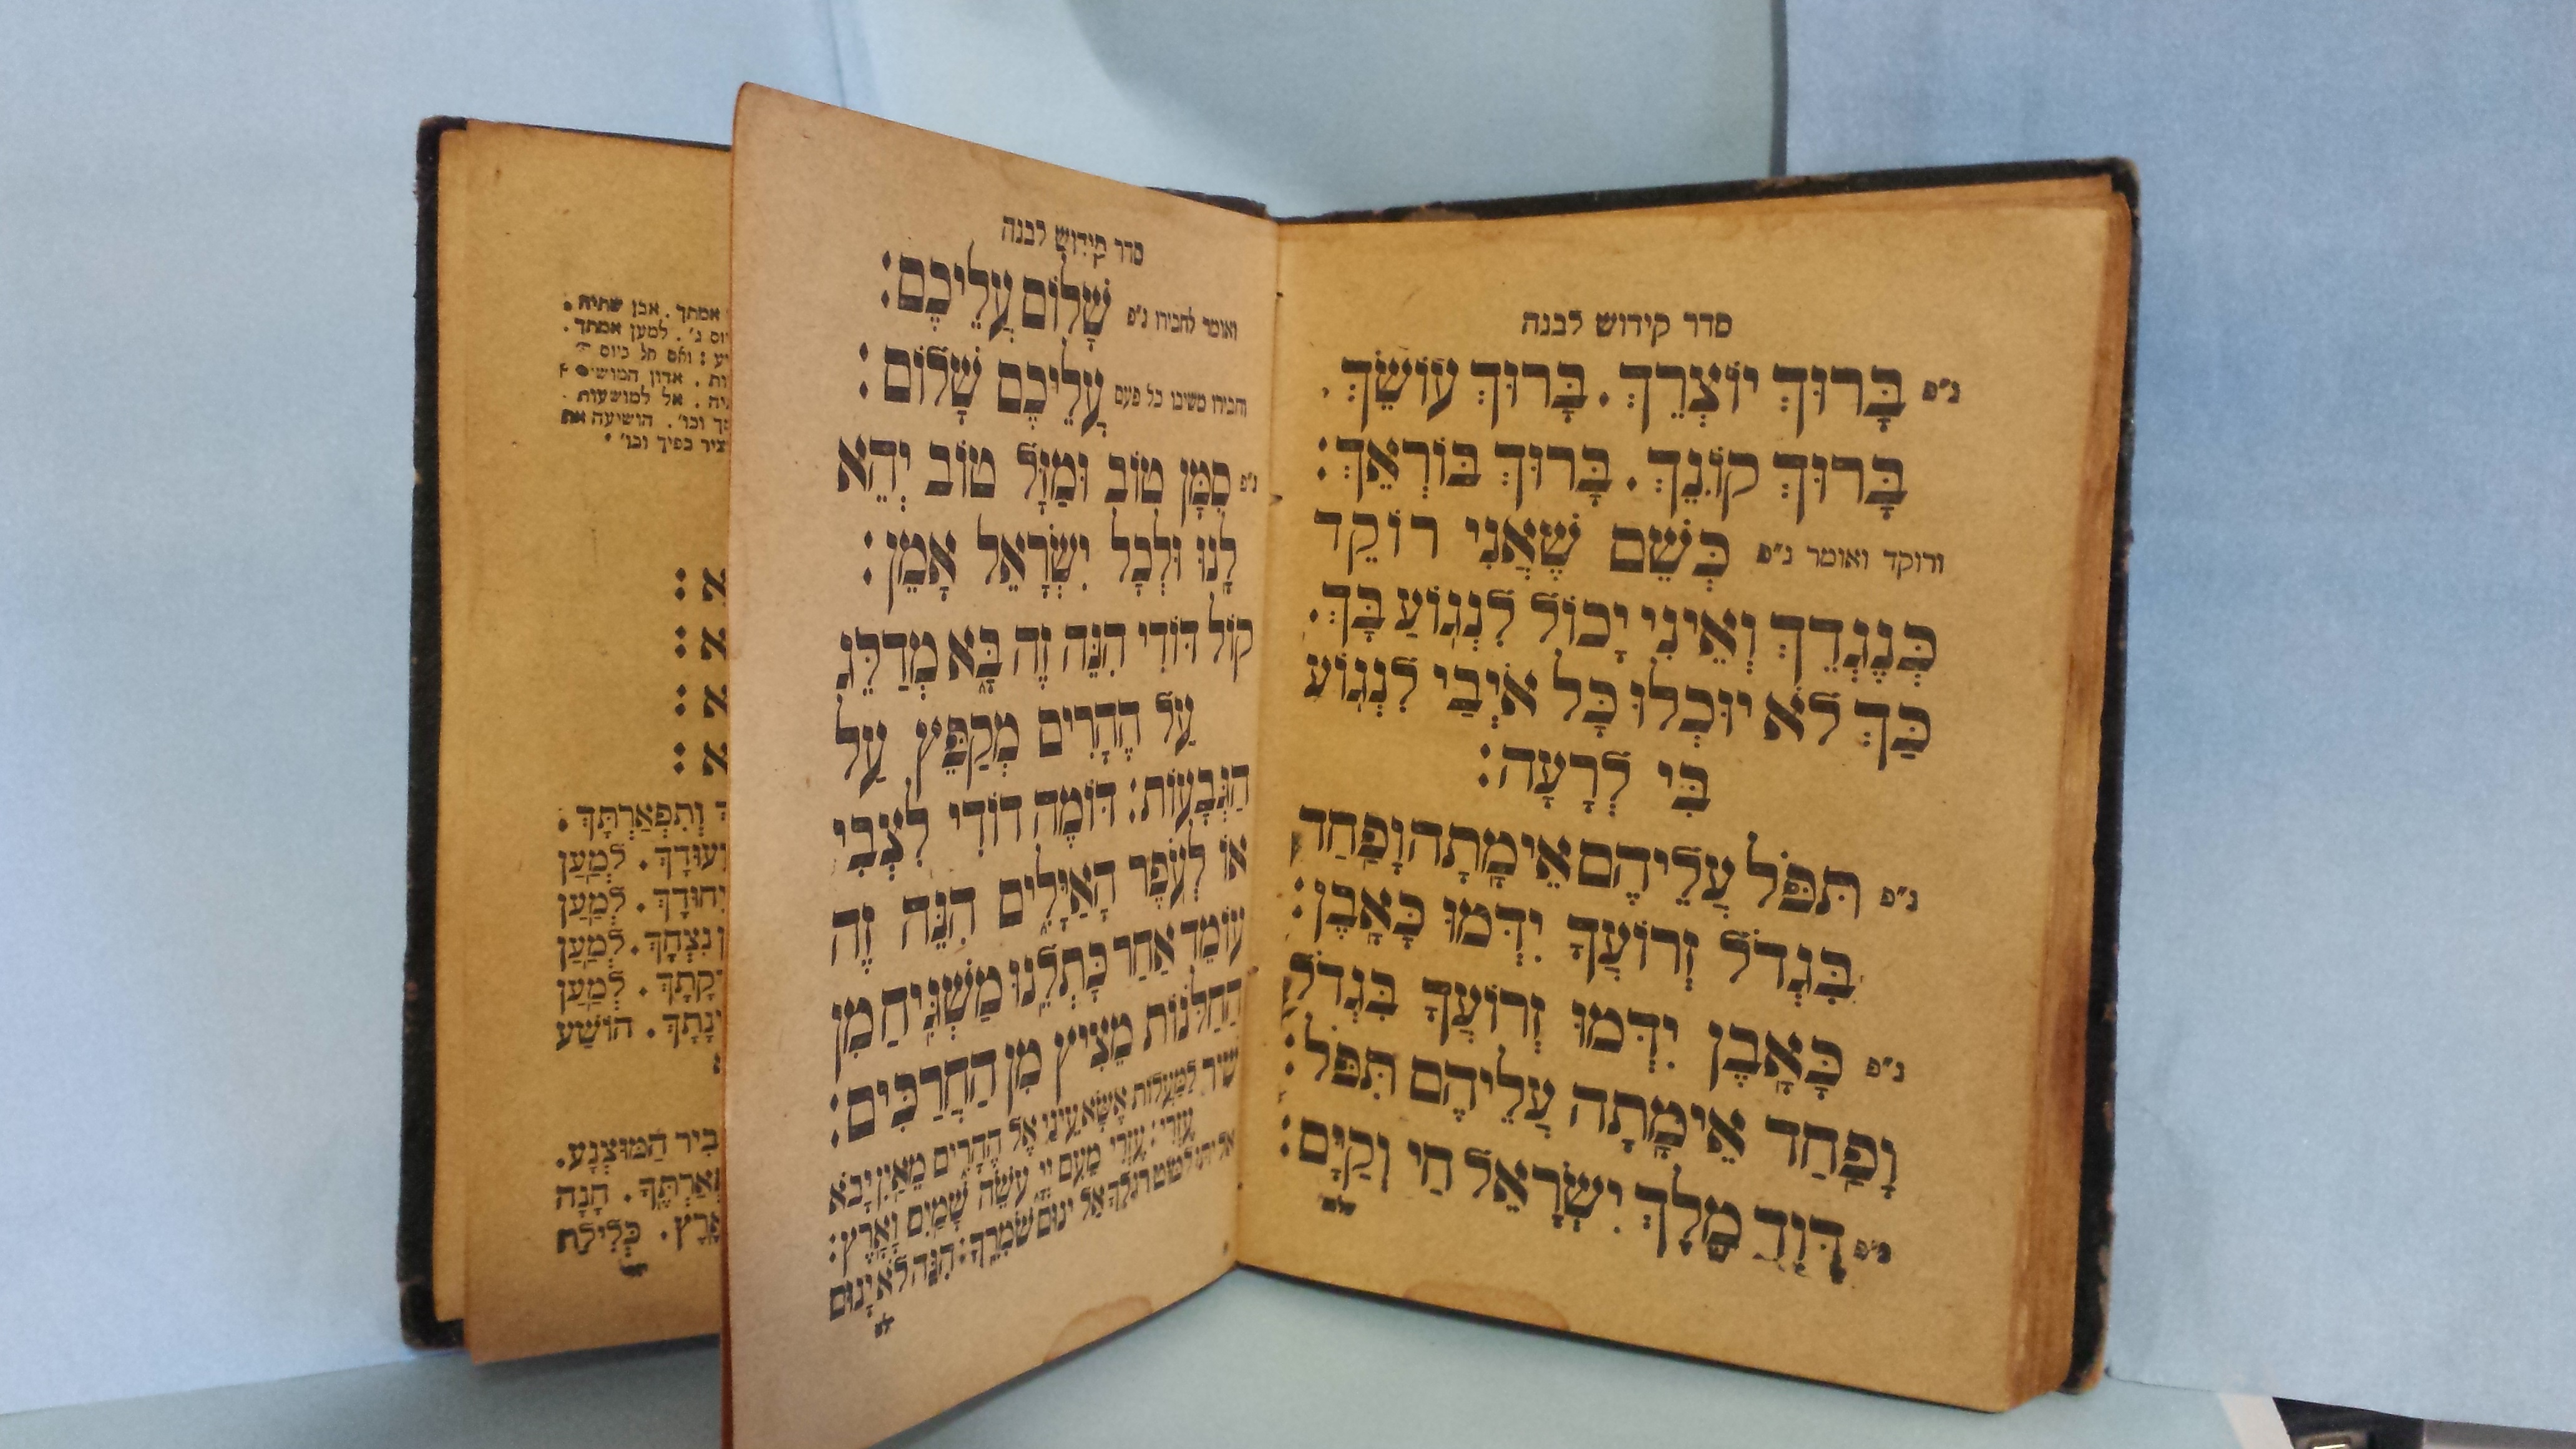 סדר קידוש לבנה
ג״פ בָּרוּךְ יוֹצְרֵךְ. בָּרוּךְ עוֹשֵׂךְ.
בָּרוּךְ קוֹנֵךְ. בָּרוּךְ בּוֹרְאֵךְ:
ורוקד ואומר ג״פ כְּשֵׁם שֶׁאֲנִי רוֹקֵד
כְּנֶגְדֵךְ וְאֵינִי יָכוֹל לִנְגּוֹעַ בָּךְ.
כַּךְ לֹא יוּכְלוּ כָּל אֹיְבַי לִנְגּוֹעַ
בִּי לְרָעָה:
ג״פ תִּפֹּל עֲלֵיהֶם אֵימָתָה וָפַחַד
בִּגְדֹל זְרוֹעֲךָ יִדְּמוּ כָּאָבֶן:
ג״פ כָּאָבֶן יִדְּמוּ זְרוֹעֲךָ בִּגְדֹל
וָפַחַד אֵימָתָה עֲלֵיהֶם תִּפֹּל:
ג״פ דָּוִד מֶלֶךְ יִשְׂרָאֵל חַי וְקַיָּם:
סדר קידוש לבנה
ואומר לחבירו ג״פ שָׁלוֹם עֲלֵיכֶם:
וחבירו משיבו כל פעם עֲלֵיכֶם שָׁלוֹם:
ג״פ סִמָּן טוֹב וּמַזָּל טוֹב יְהֵא
לָנוּ וּלְכָל יִשְׂרָאֵל אָמֵן:
קוֹל דּוֹדִי הִנֵּה זֶה בָּא מְדַלֵּג
עַל הֶהָרִים מְקַפֵּץ עַל
הַגְּבָעוֹת: דּוֹמֶה דוֹדִי לִצְבִי
אוֹ לְעֹפֶר הָאַיָּלִים הִנֵּה זֶה
עוֹמֵד אַחַר כָּתְלֵנוּ מַשְׁגִּיחַ מִן
הַחַלֹּנוֹת מֵצִיץ מִן הַחֲרַכִּים:
שִׁיר לַמַּעֲלוֹת אֶשָּׂא עֵינַי אֶל הֶהָרִים מֵאַיִן יָבֹא
עֶזְרִי: עֶזְרִי מֵעִם יְיָ עֹשֵׂה שָׁמַיִם וָאָרֶץ:
אַל יִתֵּן לַמּוֹט רַגְלֶךָ אַל יָנוּם שֹׁמְרֶךָ: הִנֵּה לֹא יָנוּם
אמתך. אבן שתיה.
ג׳. למען אמתך.
ואם חל ביום
אדון המושיע
אל למושעות
וכו׳. הושיעה את
כפיך וכו׳.
א:
א:
א:
א:
וְתִפְאַרְתָּךְ.
לְמַעַן
לְמַעַן
נִצְחָךְ. לְמַעַן
לְמַעַן
הוֹשַׁע
הַמּוּצְנָע.
חָנָה
כְּלִילַת